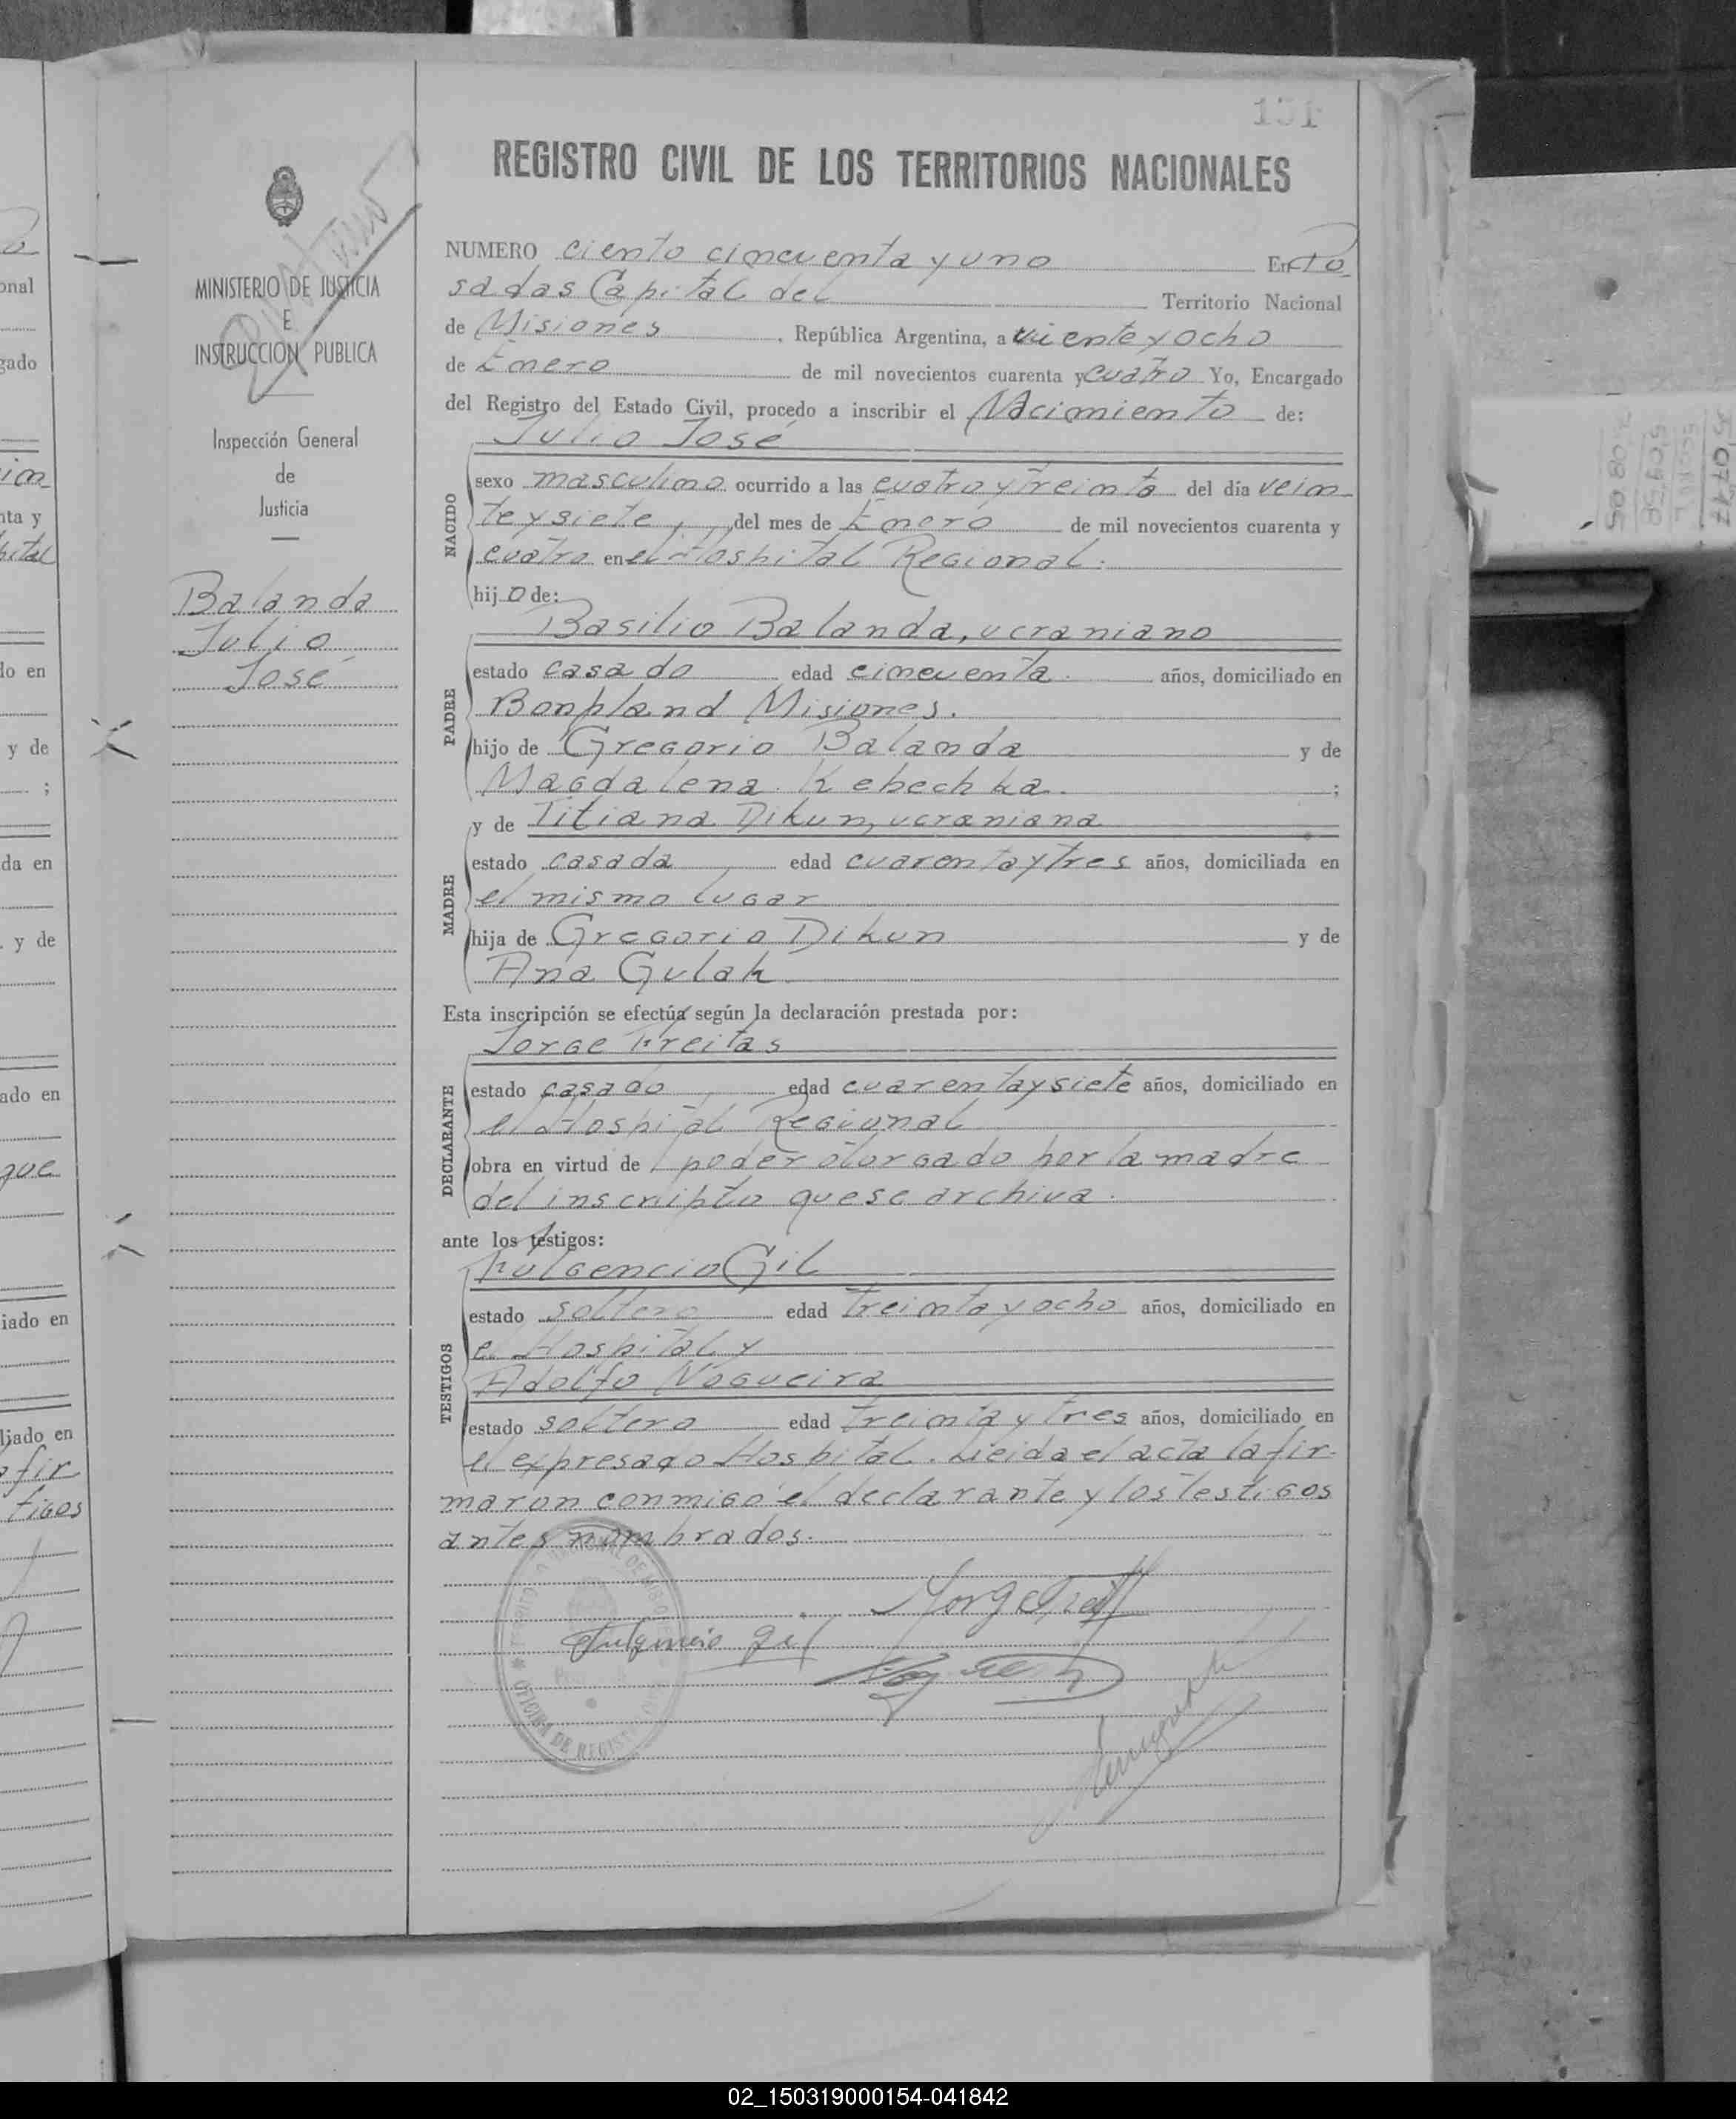 151
REGISTRO CIVIL DE LOS TERRITORIOS NACIONALES
MINISTERIO DE JUSTICIA
E
INSTRUCCION PUBLICA
Inspección General
de
Justicia
Balanda
Julio
José
NUMERO ciento cincuenta y uno En Po
sadas Capital del Territorio Nacional
de Misiones, República Argentina, a viente y ocho
de Enero de mil novecientos cuarenta y cuatro Yo, Encargado
del Registro del Estado Civil, procedo a inscribir el Nacimiento de:
NACIDO
Julio José
sexo masculino ocurrido a las cuatro y treinta del día vein
te y siete, del mes de Enero de mil novecientos cuarenta y
cuatro en el Hospital Regional.
hijo de:
PADRE
Basilio Balanda, ucraniano
estado casado edad cincuenta años, domiciliado en
Bonpland Misiones.
hijo de Gregorio Balanda y de
Magdalena Kebechka. ;
MADRE
y de Titiana Dikun, ucraniana
estado casada edad cuarenta y tres años, domiciliada en
el mismo lugar
hija de Gregorio Dikun y de
Ana Gulak
Esta inscripción se efectúa según la declaración prestada por:
DECLARANTE
Jorge Freitas
estado casado edad cuarenta y siete años, domiciliado en
el Hospital Regional
obra en virtud de poder otorgado por la madre
del inscripto que se archiva.
ante los testigos:
TESTIGOS
Fulgencio Gil
estado soltero edad treinta y ocho años, domiciliado en
el Hospital y
Adolfo Nogueira
estado soltero edad treinta y tres años, domiciliado en
el expresado Hospital. Leida el acta la fir-
maron conmigo el declarante y los testigos
antes nombrados.
Fulgencio Gil
OFICINA DE REGIS
02_150319000154-041842